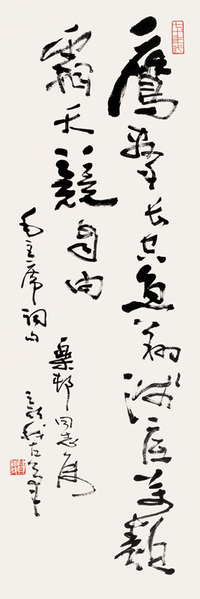 鹰击长空鱼翔浅底万类
霜天竞自由
毛主席词句
乐邨同志属